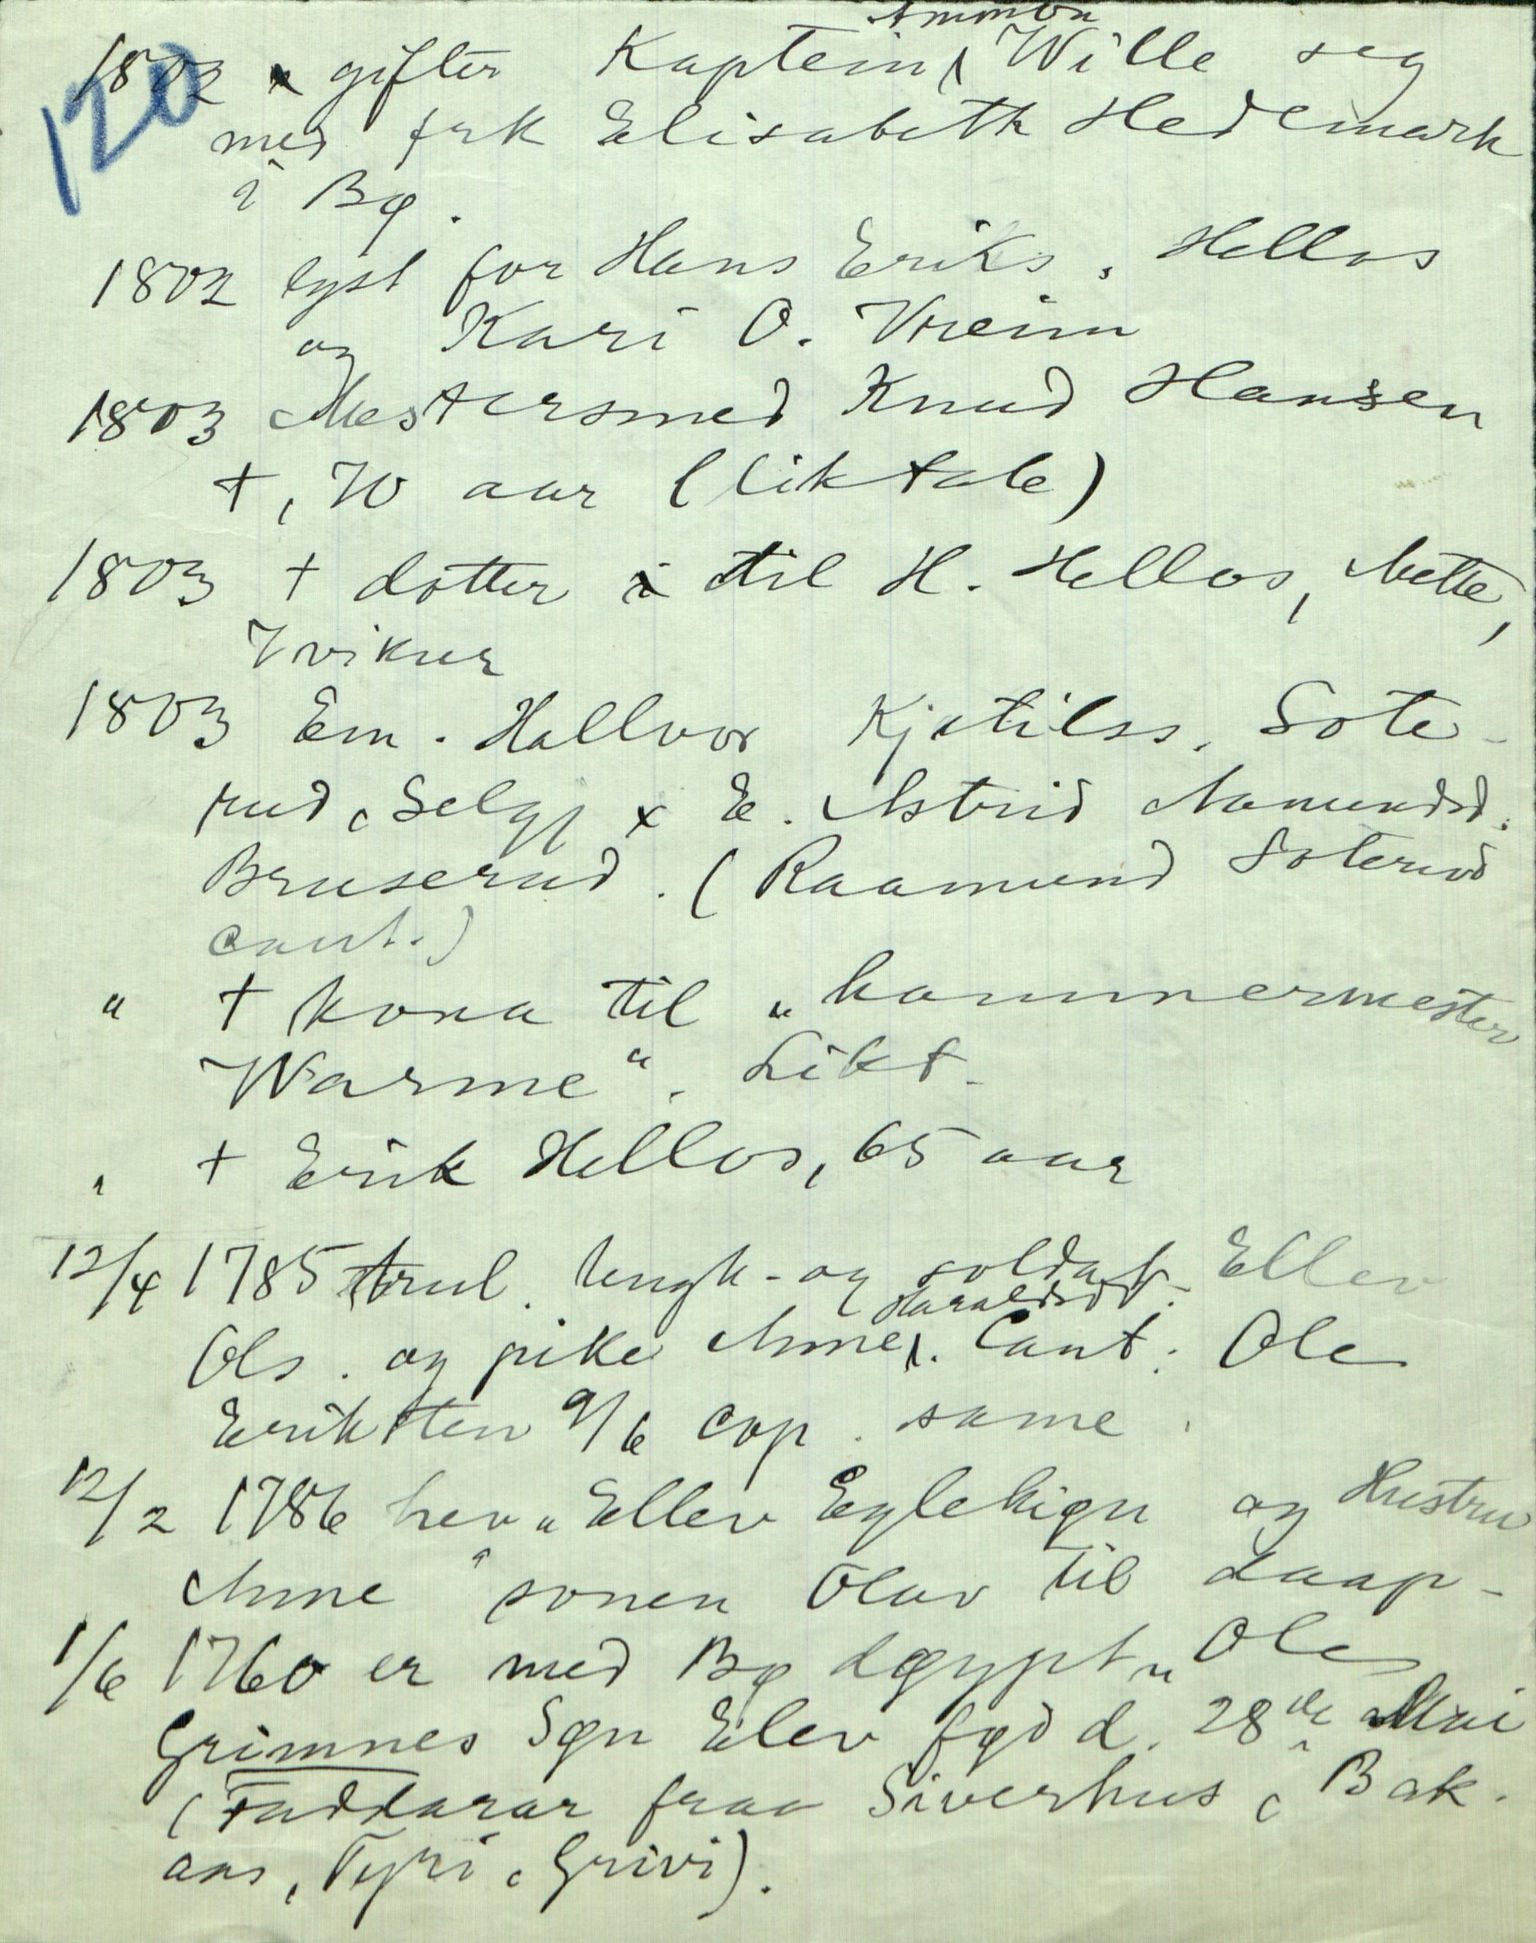 120
Ammon
1802 gifter Kaptein Wille seg
med frk Elisabeth Hedemark
i Bø.
1802 lyst for Hans Eriks. Hellos
og Kari O. Vreim
1803 Mestersmed Knud Hansen
+, 70 aar (liktale)
1803 + dotter til H. Hellos, Mette,
7 vikur
1803 Em. Hallvor Kjetilss. Sote-
rud, Selgj x E. Astrid Aamundsd.
Bruserud. (Raamund Soterud
caut.)
" + kona til "hammermester
Warme". Likt.
" + Erik Hellos, 65 aar
12/4 1785 trul. ungk- og soldat. Ellev
Haraldsdt.
Ols. og pike Anne. Caut. Ole
Eriksten 9/6 cop. same.
12/2 1786 hev "Ellev Eglehign og Hustru
Anne" sonen Olav til daap-
1/6 1760 er med Bø døypt "Ole
Grimnes Søn Elev fød d. 28de Mai
(Faddarar fraa Siverhus, Bak.
aas, Tyri, Grivi).